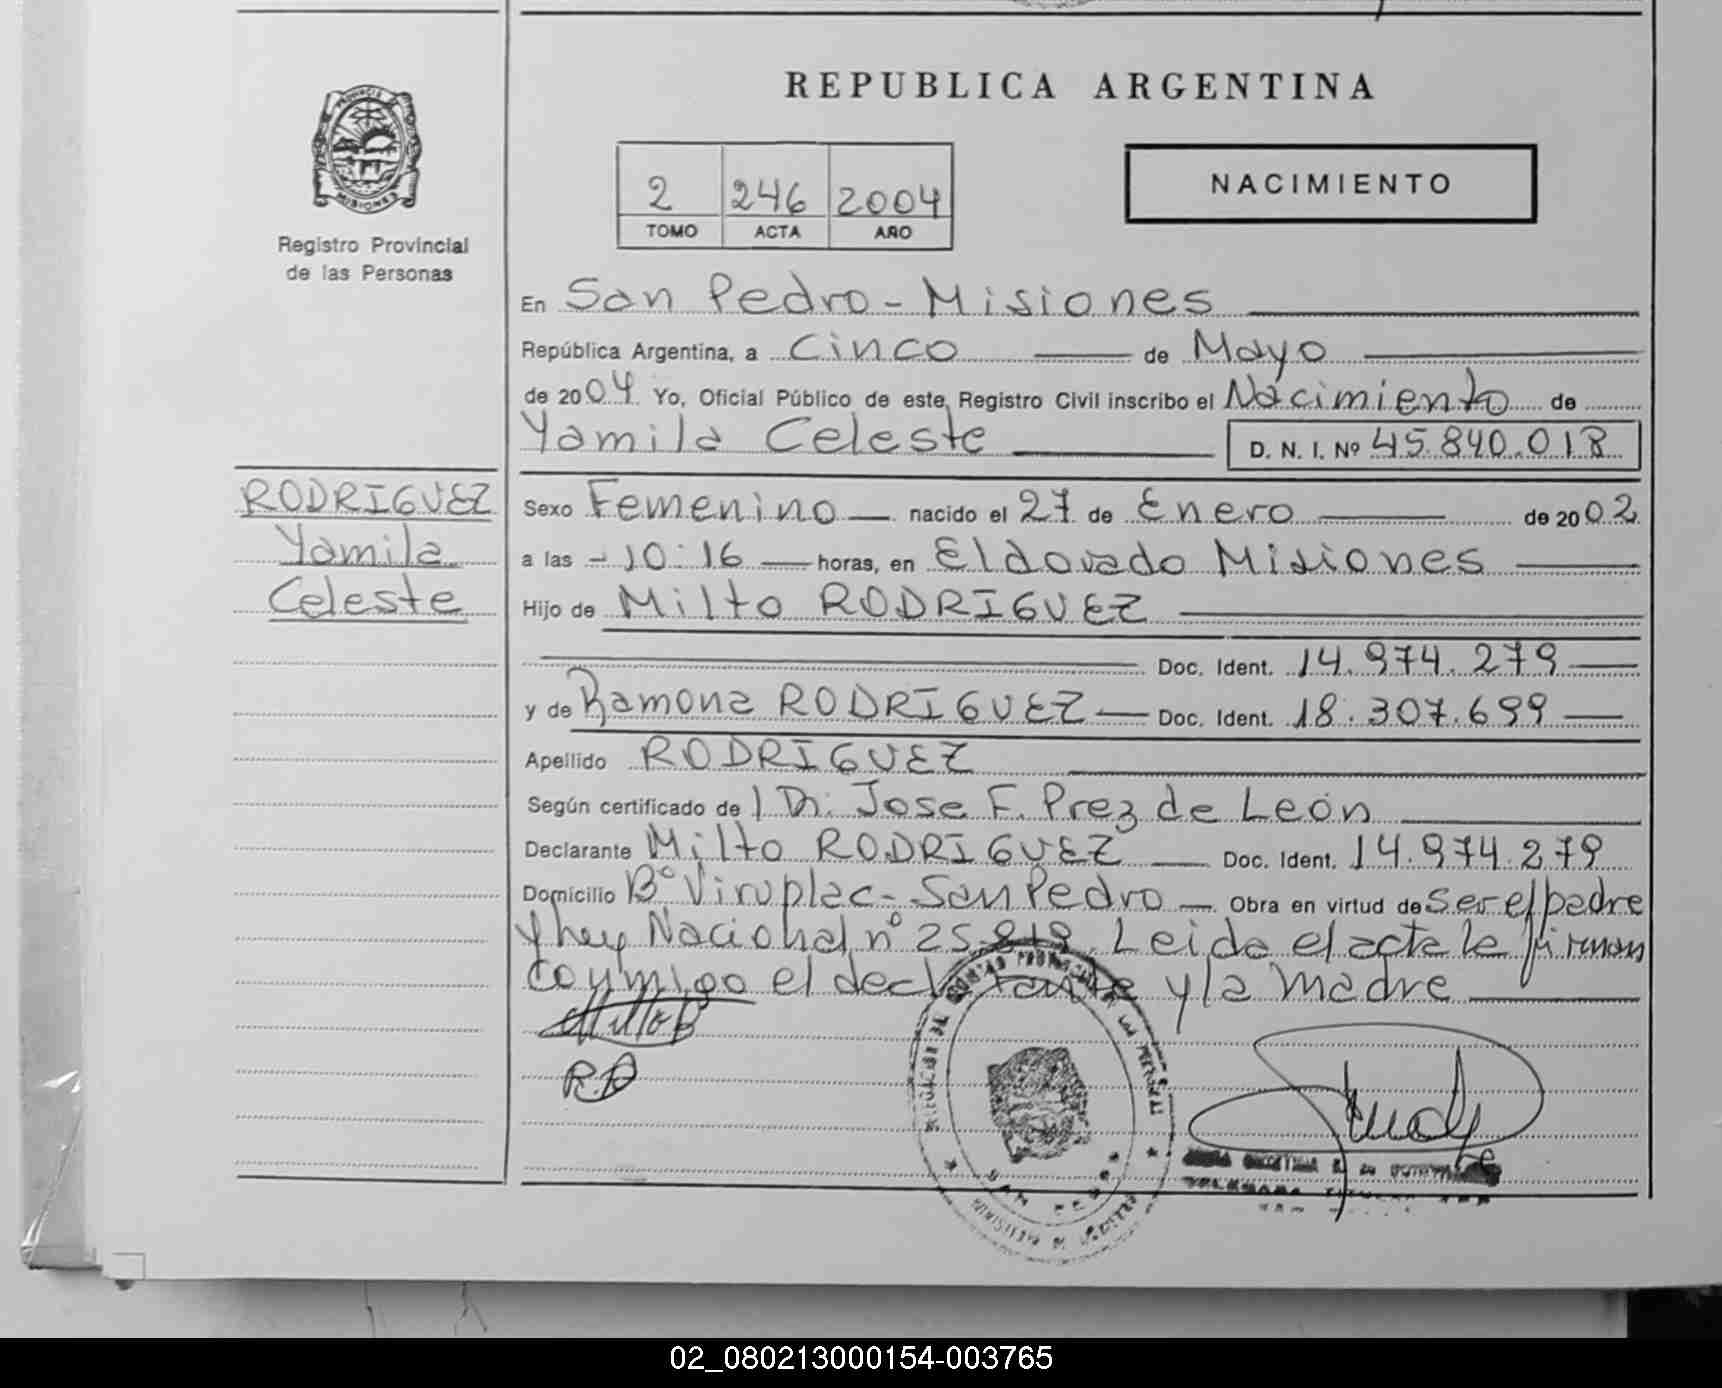 REPUBLICA ARGENTINA
PROVINCIA
MISIONES
Registro Provincial
de las Personas
2 246 2004
TOMO ACTA AÑO
NACIMIENTO
En San Pedro - Misiones
República Argentina, a Cinco de Mayo
de 2004 Yo, Oficial Público de este Registro Civil inscribo el Nacimiento de
Yamila Celeste D. N. I. Nº 45.840.018
RODRIGUEZ
Yamila
Celeste
Sexo Femenino nacido el 27 de Enero de 2002
a las - 10:16 horas, en Eldorado Misiones
Hijo de Milto RODRIGUEZ
Doc. Ident. 14.974.279
y de Ramona RODRIGUEZ Doc. Ident. 18.307.699
Apellido RODRIGUEZ
Según certificado de Dr. Jose F. Prez de León
Declarante Milto RODRIGUEZ Doc. Ident. 14.974.279
Domicilio Bº Viruplac - San Pedro Obra en virtud de ser el padre
y ley Nacional nº 25.819. Leida el acta la firman
conmigo el declarante y la madre
R.R
SAN PEDRO
02_080213000154-003765